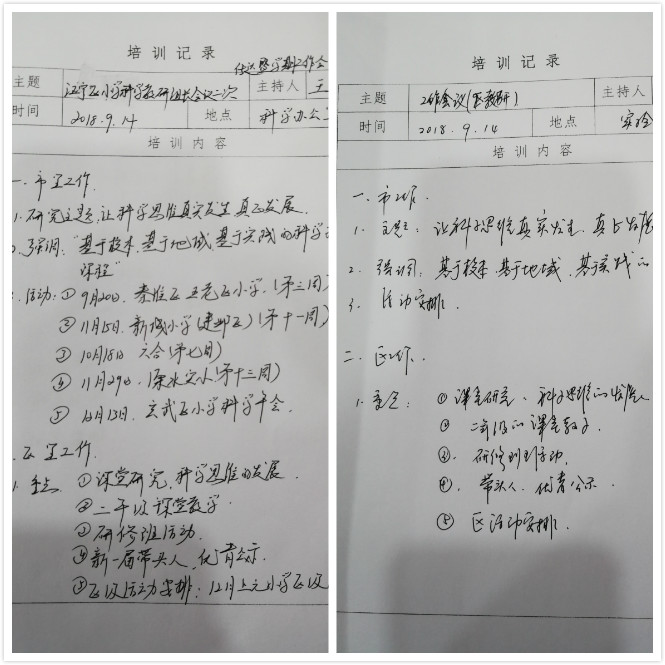 培训记录
主题
江宁区小学科学教研组长会议二次
主持人
王
时间
2018.9.14
地点
科学办公
培训内容
一.市室工作.
1.研究主题:让科学思维真实发生 真正发展.
2.强调:"基于校本,基于地域,基于实践的科学
课程"
3.活动:①9月20日.秦淮区 五老区小学.(第三周)
②11月15日.新城小学(建邺区)(第十一周)
③10月18日 六合(第七周)
④11月29日.溧水实小(第十三周)
⑤12月13日.玄武区小学科学年会.
二.区室工作.
1.重点.①课堂研究,科学思维的发展.
②二年级课堂教学.
③研修班活动.
④新一届带头人,优青公示.
⑤区级活动安排:12月上元小学区级
培训记录
主题
工作会议(区教研)
主持人
时间
2018.9.14
地点
实验
培训内容
一.市工作.
1.主题:让科学思维真实发生,真正发展
2.强调:基于校本.基于地域,基于实践的
3.活动安排.
二.区工作.
1.重点:①课堂研究、科学思维的发展
②二年级的课堂教学.
③.研修班活动.
④.带头人、优青公示.
⑤区活动安排.